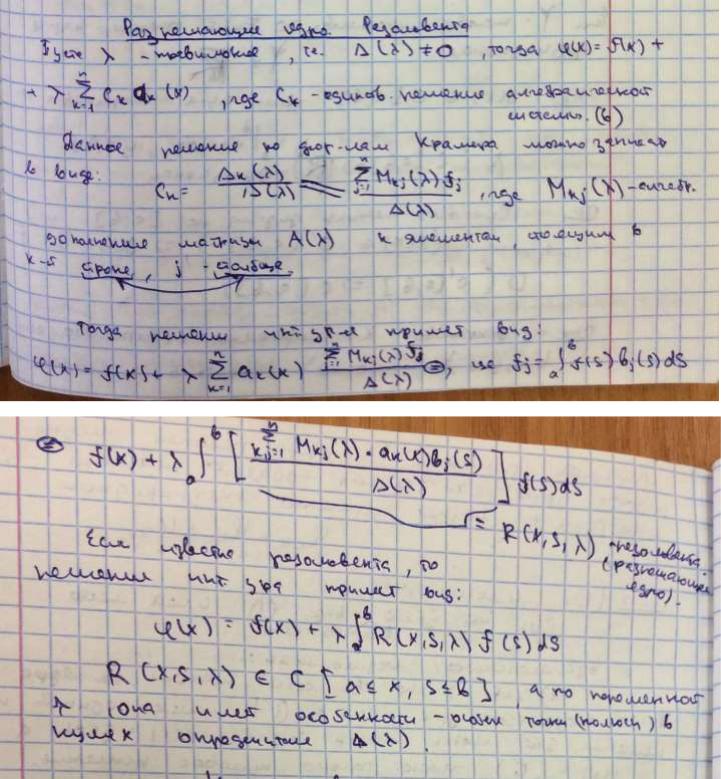 Разрешающее ядро. Резольвента
Пусть λ - произвольное, т.е. Δ(λ) ≠ 0, тогда φ(x) = f(x) +
+ λ ∑_{k=1}^{n} C_k a_k(x), где C_k - решение алгебраической
системы. (6)
Данное решение по фор-лам Крамера можно записать
в виде: C_k = Δ_k(λ) / Δ(λ) = ∑_{j=1}^{n} M_{kj}(λ) f_j / Δ(λ), где M_{kj}(λ) - алгебр.
дополнения матрицы A(λ) к элементам, стоящим в
k-й строке, j - столбце.
Тогда решение инт ур-я примет вид:
φ(x) = f(x) + λ ∑_{k=1}^{n} a_k(x) ∑_{j=1}^{n} M_{kj}(λ) f_j / Δ(λ) ⊜, где f_j = ∫_a^b f(s) b_j(s) ds
⊜ f(x) + λ ∫_a^b [ ∑_{k,j=1}^{n} M_{kj}(λ) · a_k(x) b_j(s) / Δ(λ) ] f(s) ds
= R(x, s, λ) - резольвента
(разрешающее
ядро).
Если известна резольвента, то
решение инт ура примет вид:
φ(x) = f(x) + λ ∫_a^b R(x, s, λ) f(s) ds
R(x, s, λ) ∈ C [a ≤ x, s ≤ b], а по переменной
λ она имеет особенности - особые точки (полюсы) в
нулях определителя Δ(λ).